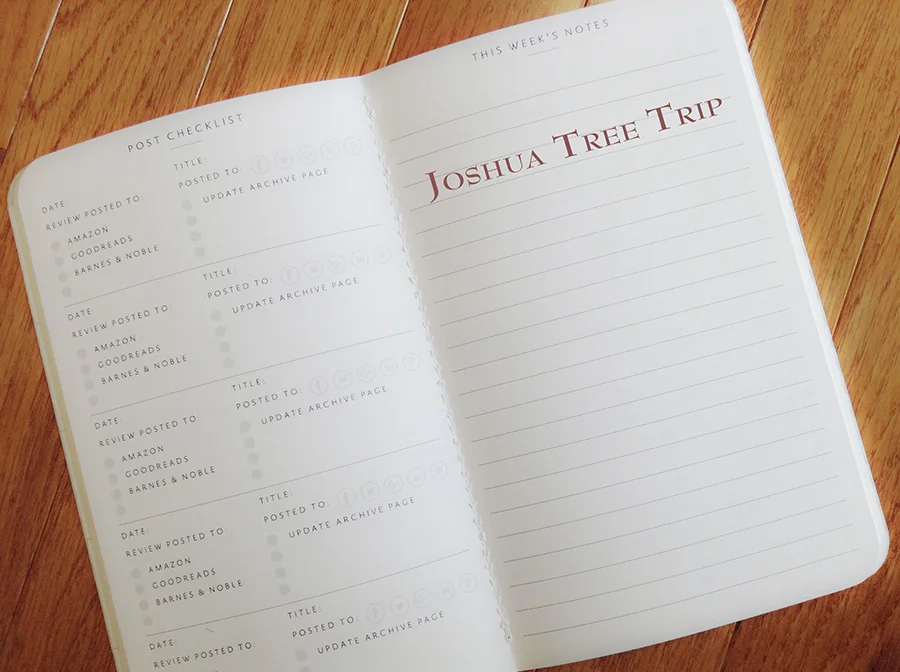 POST CHECKLIST
DATE:
TITLE:
REVIEW POSTED TO:
POSTED TO:
AMAZON
UPDATE ARCHIVE PAGE
GOODREADS
BARNES & NOBLE
DATE:
TITLE:
REVIEW POSTED TO:
POSTED TO:
AMAZON
UPDATE ARCHIVE PAGE
GOODREADS
BARNES & NOBLE
DATE:
TITLE:
REVIEW POSTED TO:
POSTED TO:
AMAZON
UPDATE ARCHIVE PAGE
GOODREADS
BARNES & NOBLE
DATE:
TITLE:
REVIEW POSTED TO:
POSTED TO:
AMAZON
UPDATE ARCHIVE PAGE
GOODREADS
BARNES & NOBLE
DATE:
TITLE:
REVIEW POSTED TO:
POSTED TO:
AMAZON
UPDATE ARCHIVE PAGE
THIS WEEK'S NOTES
JOSHUA TREE TRIP